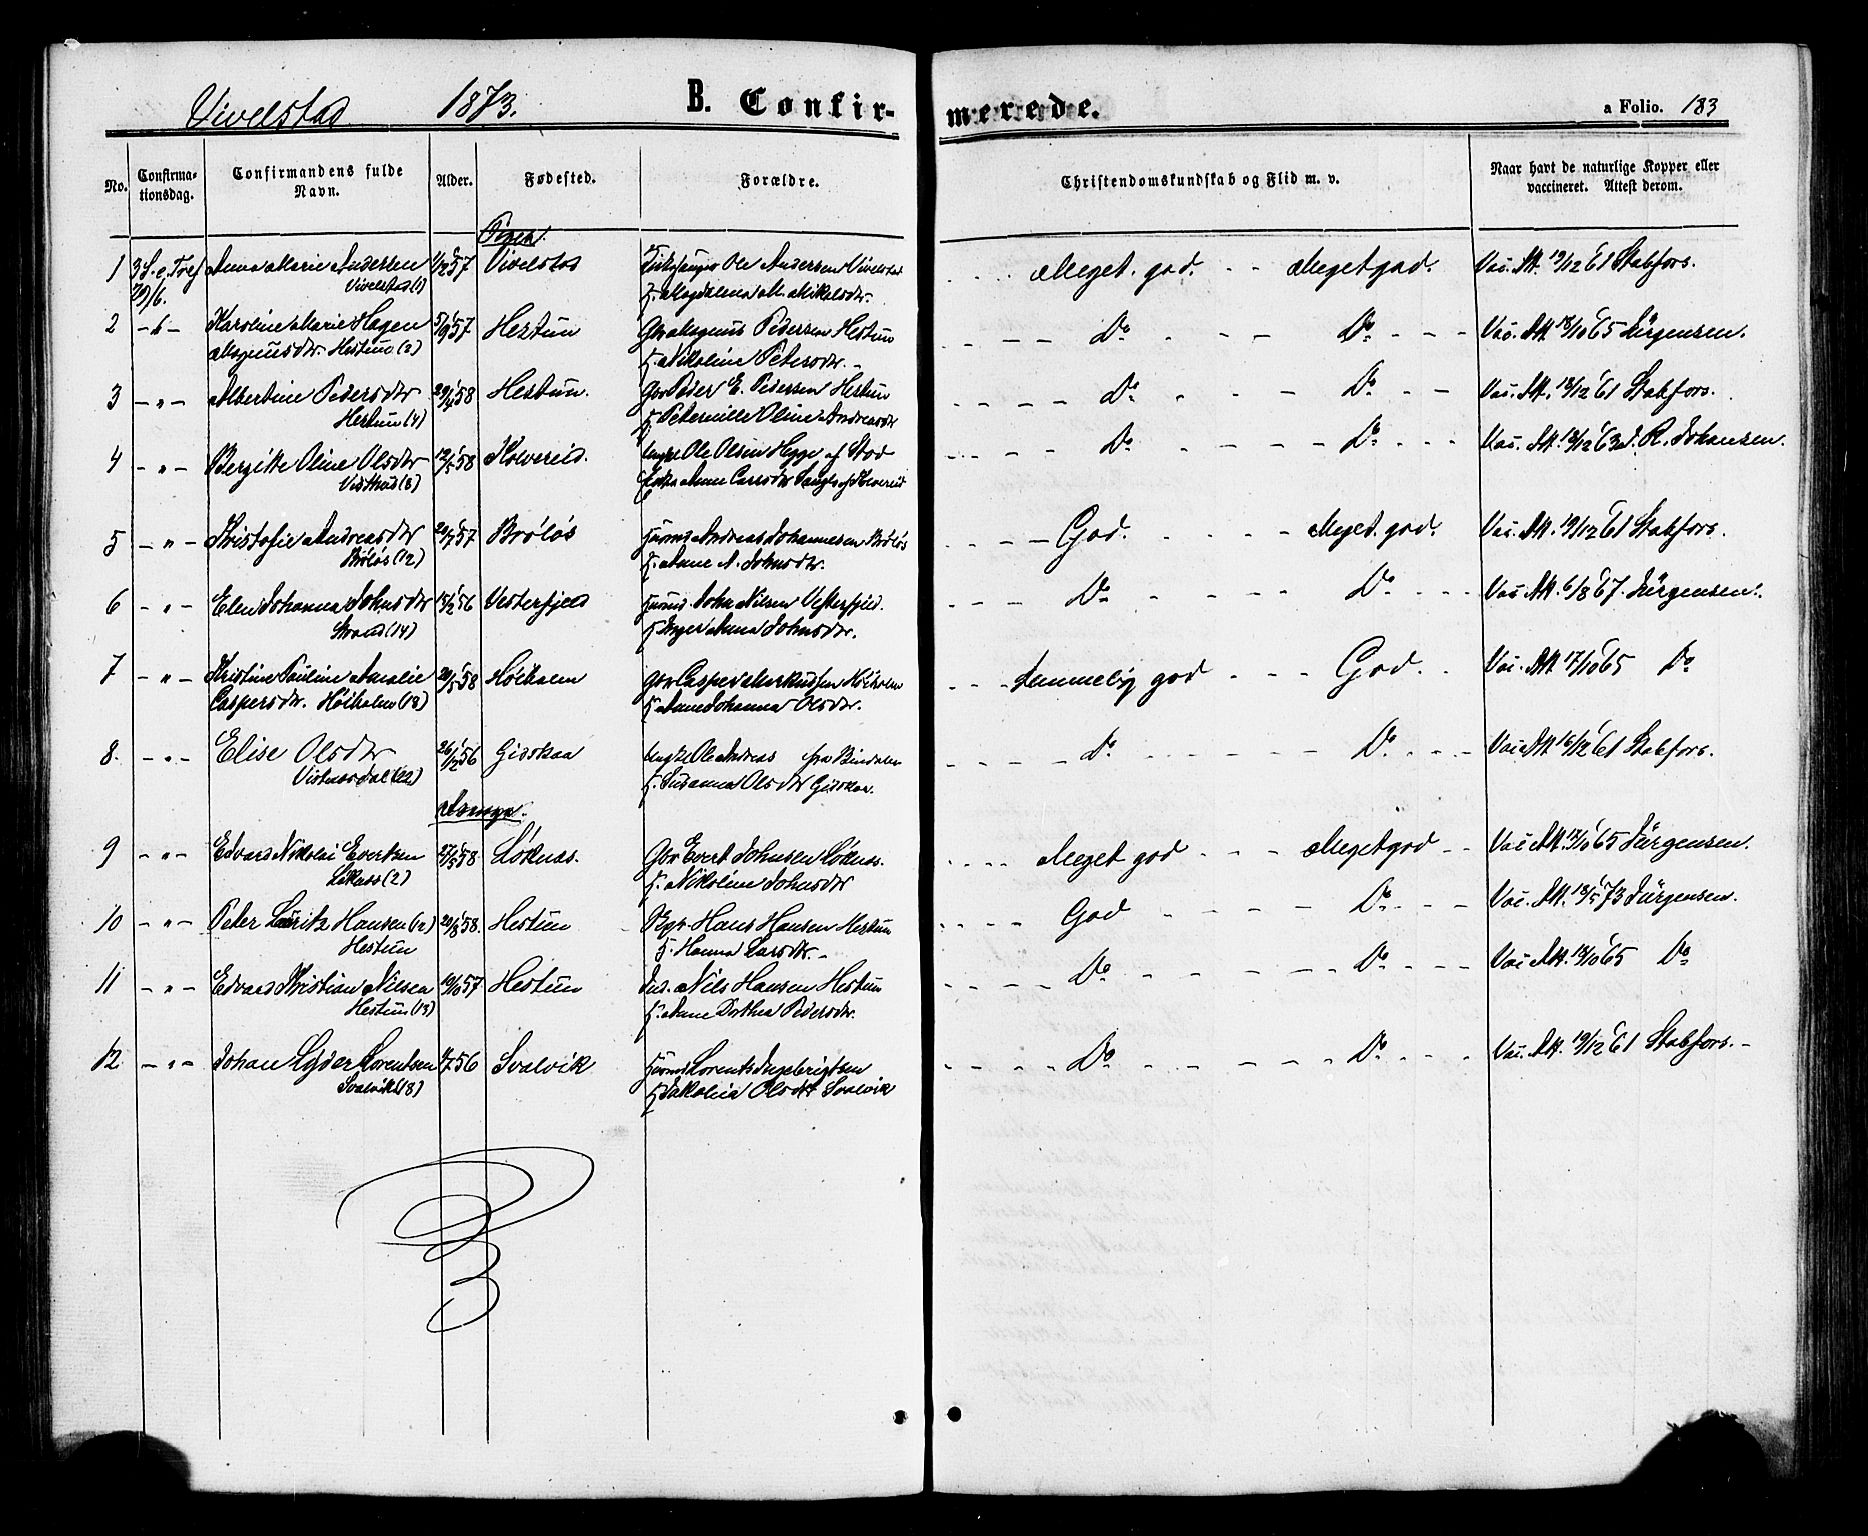 Vivelstad 1873. B. Confir-
merede. a Folio. 183
No. Confirma-tionsdag. Confirmandens fulde Navn. Alder. Fødested. Forældre. Christendomskundskab og Flid m. v. Naar havt de naturlige Kopper eller vaccineret. Attest derom.
Piger.
1 3 S. e. Tref Anna Marie Andersen 57 Vivelstad Kirkesanger Ole Andersen Vivelstad - - - Meget god. - - Meget god. Vac. Att. 19/12 61 Stabfors.
29/6. Vivelstad (1) H. Magdalena M. Mikalsdtr.
2 - " - Karoline Marie Hagen 5/9 57 Hestun Gbr Magnus Pedersen Hestun Do Do Vac. Att 18/10 65 Jürgensen.
Magnusdtr. Hestun (2) H. Nikoline Petersdtr. -
3 - " - Albertine Pedersdtr 29/4 58 Hestun. Gbr Peder E. Pedersen Hestun Do Do Vac. Att. 18/12 61 Stabfors.
Hestun (4) H. Peternille Oline Andreasdtr
4 - " - Bergitte Oline Olsdtr 12/5 58 Kolvereid. Ungk. Ole Olsen Hegge af Stod Do Do Vac. Att. 18/12 63 J. R. Johansen.
Visthus (8) Anne Larsdtr af Kolvereid
5 - " - Kristofie Andreasdtr 57 Brøløs Huusmd Andreas Johannesen Brøløs God. Meget god. Vac. Att. 19/12 61 Stabfors.
Brøløs (12) H. Anne N. Johnsdtr.
6 - " - Elen Johanna Johnsdtr 15/2 56 Vesterfjeld Huusmd. John Nilsen Vesterfjeld. Do Do Vac. Att. 6/8 67. Jürgensen.
Strand (14) H. Inger Anna Johnsdtr.
7 - " - Kristine Pauline Amalie 20/5 58 Høiholm Gbr Casper Markussen Høiholm temmelig god God. Vac. Att. 17/10 65 Do
Caspersdtr. Høiholm (18) H. Ane Johanna Olsdtr.
8. - " - Elise Olsdtr 26/12 56 Gidskaa Ungk. Ole Andreas fra Bindalen Do Do Vac Att 16/12 61 Stabfors.
Vistnesdal (22) P. Susanna Olsdtr Gidskaa.
Drenge.
9 - " - Edvard Nikolai Evertsen 27/3 58 Løknæs. Gbr Evert Johnsen Løknæs. Meget god Meget god Vac Att 17/10 65 Jürgensen.
Løknæs (2) H. Nikoline Johnsdtr
10 - " - Peter Lauritz Hansen (12) 20/8 58. Hestun Bgr. Hans Hansen Hestun God Do Vac. Att. 18/5 73 Jürgensen.
Hestun H. Hanna Larsdtr. -
11 - " - Edvard Kristian Nilsen 19/10 57 Hestun Ind. Nils Hansen Hestun Do Do Vac Att. 18/10 65 Do
Hestun (13) H. Anne Dorthea Pedersdtr.
12 - " - Johan Lyder Lorentsen 56 Svalvik Huusmd Lorents Ingebrigtsen Do Do Vac. Att. 19/12 61 Stabfors. -
Svalvik (8) H. Jakobia Olsdtr Svalvik